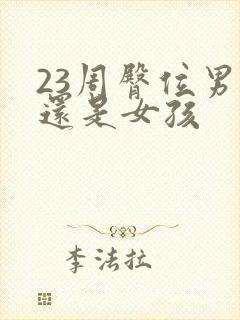 23周臀位男
還是女孩
李法拉